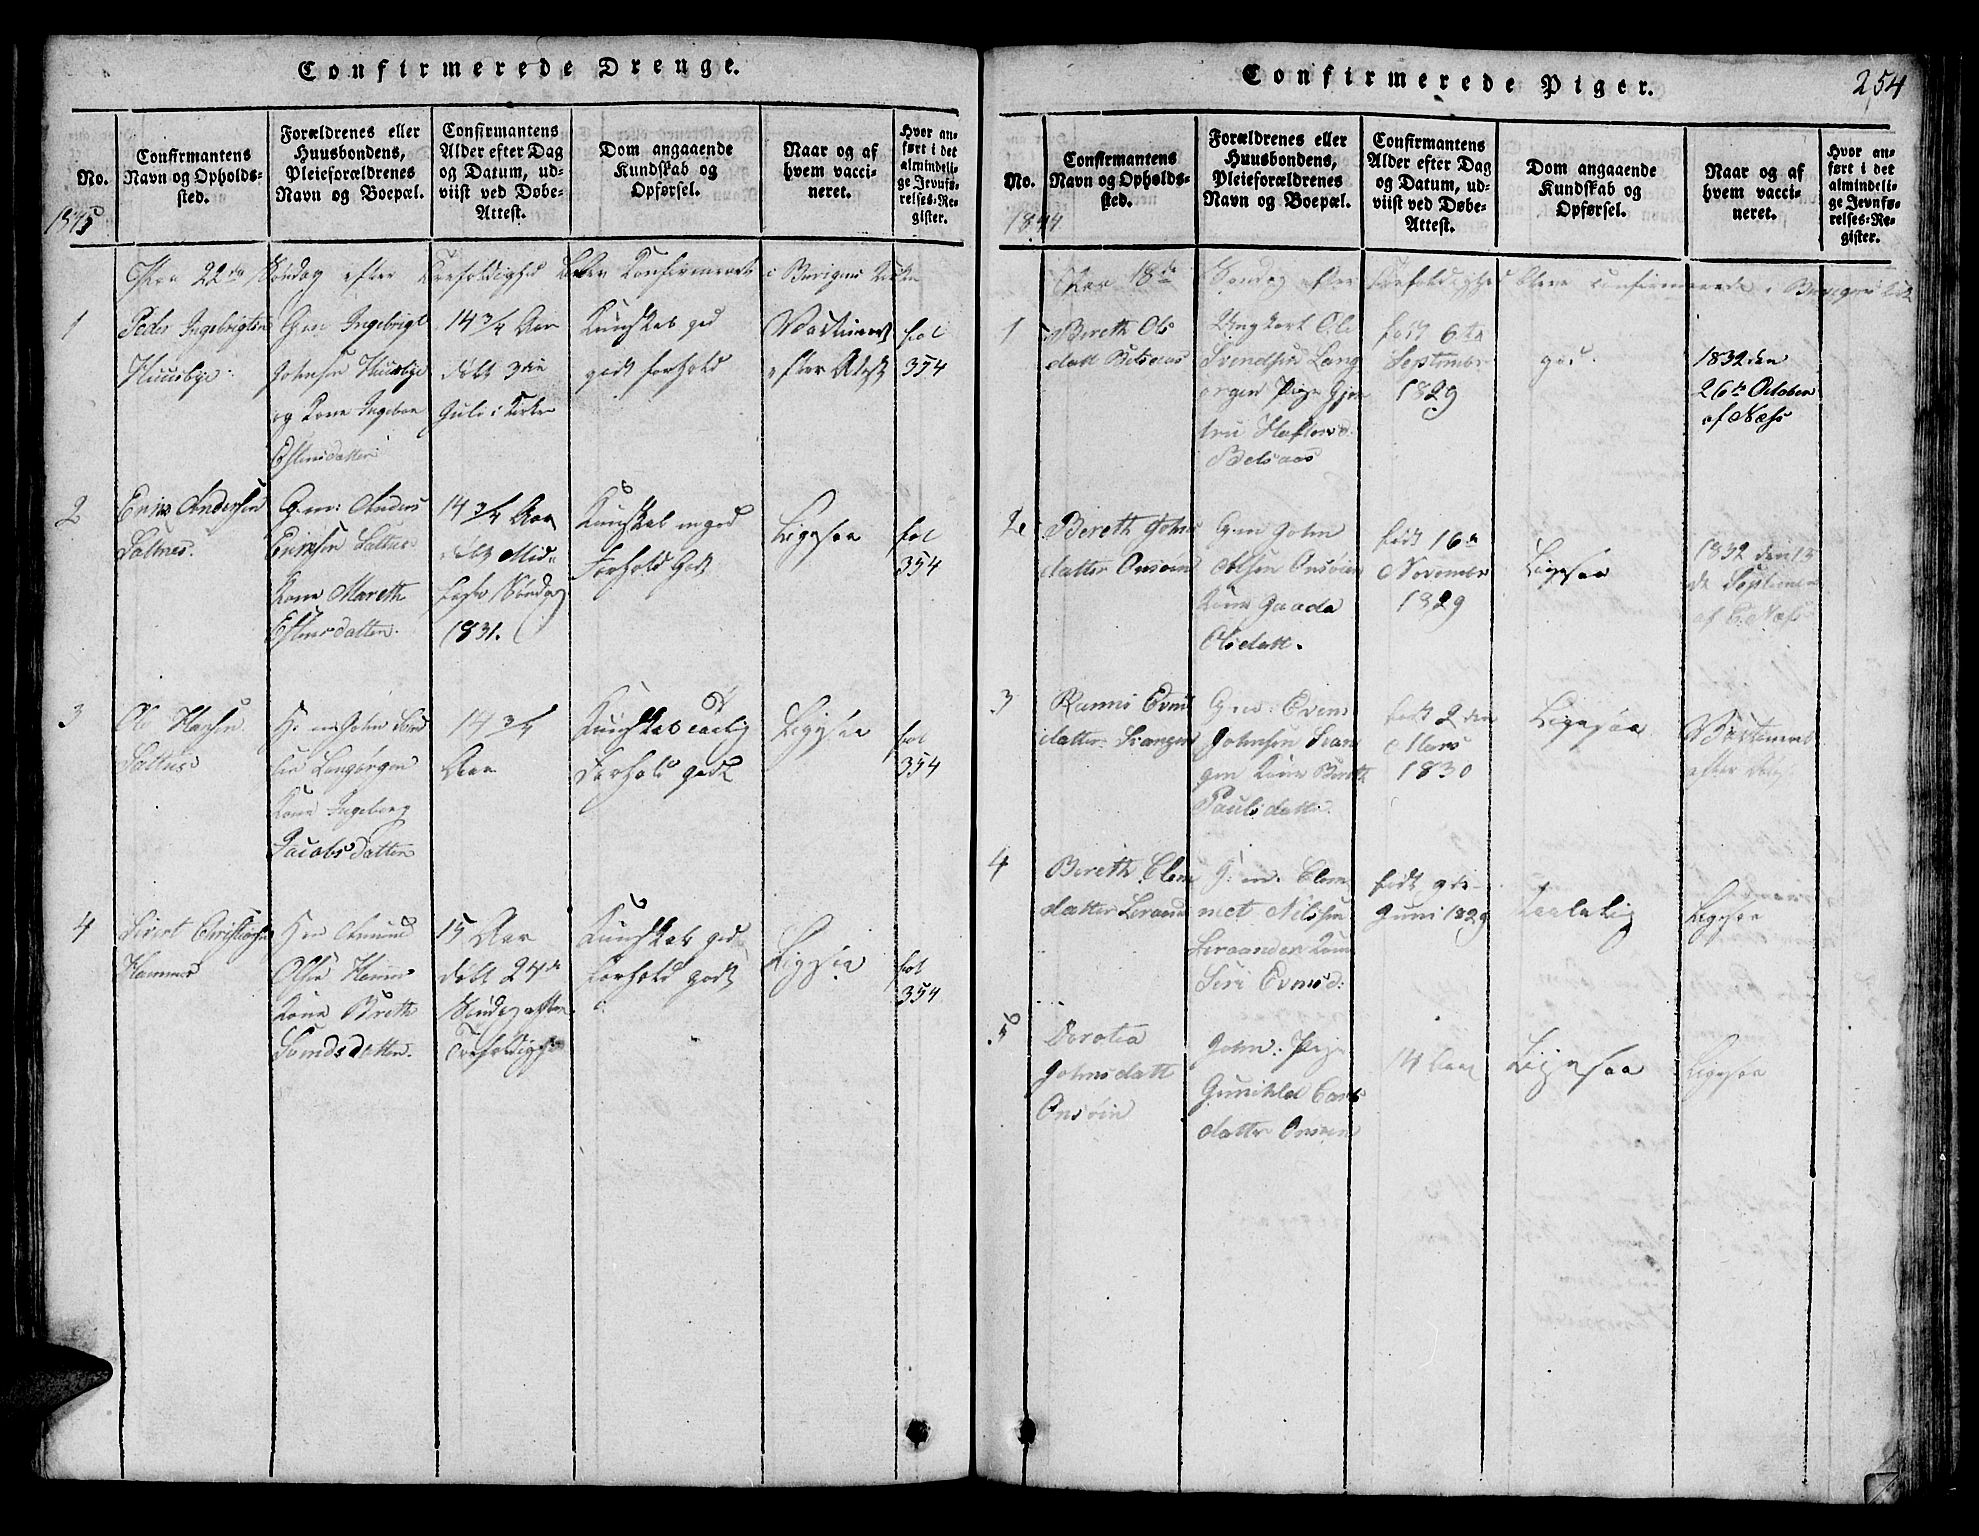 Confirmerede Drenge.
No.
Confirmantens
Navn og Opholds-
sted.
Forældrenes eller
Huusbondens,
Pleieforældrenes
Navn og Boepæl.
Confirmantens
Alder efter Dag
og Datum, ud-
viist ved Døbe-
Attest.
Dom angaaende
Kundskab og
Opførsel.
Naar og af
hvem vacci-
neret.
Hvor an-
ført i det
almindeli-
ge Jevnfø-
relses-Re-
gister.
1845
22de Søndag efter Trefoldighed Confirmerede i
1
Peder Ingebrigtsen
Huusbye.
Gm Ingebrigt
Johnsen Huusbye
og Kone Ingebor
Estensdatter
14 3/4 Aar
døbt 3die
Juli i Kirken
Kundskab god
godt forhold
efter Attest
fol
354
2
Erik Andersen
Saltnes.
G.m: Anders
Eriksen Saltnes
Kone Mareth
Estensdatter.
14 3/4 Aar
døbt Mid-
faste Søndag
1831.
Kundskab mgod
Forhold Godt
Ligesaa
fol
354
3
Ole Hansen
Saltnes
John
Langørgen
Kone Ingeborg
Jacobsdatter
14 3/4
Aar
Kundskab taalig
Forhold godt
Ligesaa
fol
354
4
Sivert Christiansen
Hammer
Amund
Olsen Hammer
Kone Breth
Svendsdatter.
15 Aar
døbt 24de
Søndag efter
Trefoldighed
Kundskab god
Forhold godt
Ligesaa
fol
354
Confirmerede Piger.
254
No.
Confirmantens
Navn og Opholds-
sted.
Forældrenes eller
Huusbondens,
Pleieforældrenes
Navn og Boepæl.
Confirmantens
Alder efter Dag
og Datum, ud-
viist ved Døbe-
Attest.
Dom angaaende
Kundskab og
Opførsel.
Naar og af
hvem vacci-
neret.
Hvor an-
ført i det
almindeli-
ge Jevnfø-
relses-Re-
gister.
1844
18de Søndag efter Trefoldighed bleve confirmerede i
1
Bereth Ols
datt Belsaas
Ungkarl Ole
Svendsen Lang
ørgen Pige Gjer
tru
Belsaas
født 6te
September
1829
god.
1832 den
26de October
af Næss
2
Bereth Johns
datter Onsøien
G.m John
Olsen Onsøien
Kone
Olsdatt.
født 16de
November
1829
Ligesaa
1832 den 15
de September
af E. Næss
3
Ranni Evens
datter Svangen
G.m: Even
Johnsen Svan
gen Kone Bereth
Paulsdatt:
født 2den
Mars
1830
Ligesaa
efter
4
Bereth Clem
datter Leraand
G: m. Clem
met Nilssen
Leraanden Kone
Siri Evensd:
født 9de
Juni 1829
Taalelig
Ligesaa
5
Dorotea
Johnsdatt
Onsøien
John: Pige
Gunihld
datter Onsøien
14 Aar
Ligesaa
Ligesaa